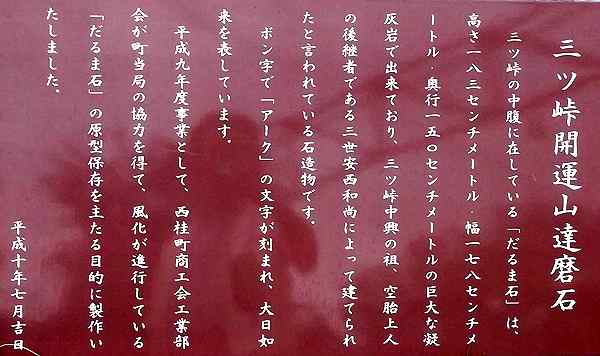 三ツ峠開運山達磨石
三ツ峠の中腹に在している「だるま石」は、
高さ一八三センチメートル・幅一七八センチメ
ートル・奥行一五〇センチメートルの巨大な凝
灰岩で出来ており、三ツ峠中興の祖、空胎上人
の後継者である三世安西和尚によって建てられ
たと言われている石造物です。
ボン字で「アーク」の文字が刻まれ、大日如
来を表しています。
平成九年度事業として、西桂町商工会工業部
会が町当局の協力を得て、風化が進行している
「だるま石」の原型保存を主たる目的に製作い
たしました。
平成十年七月吉日